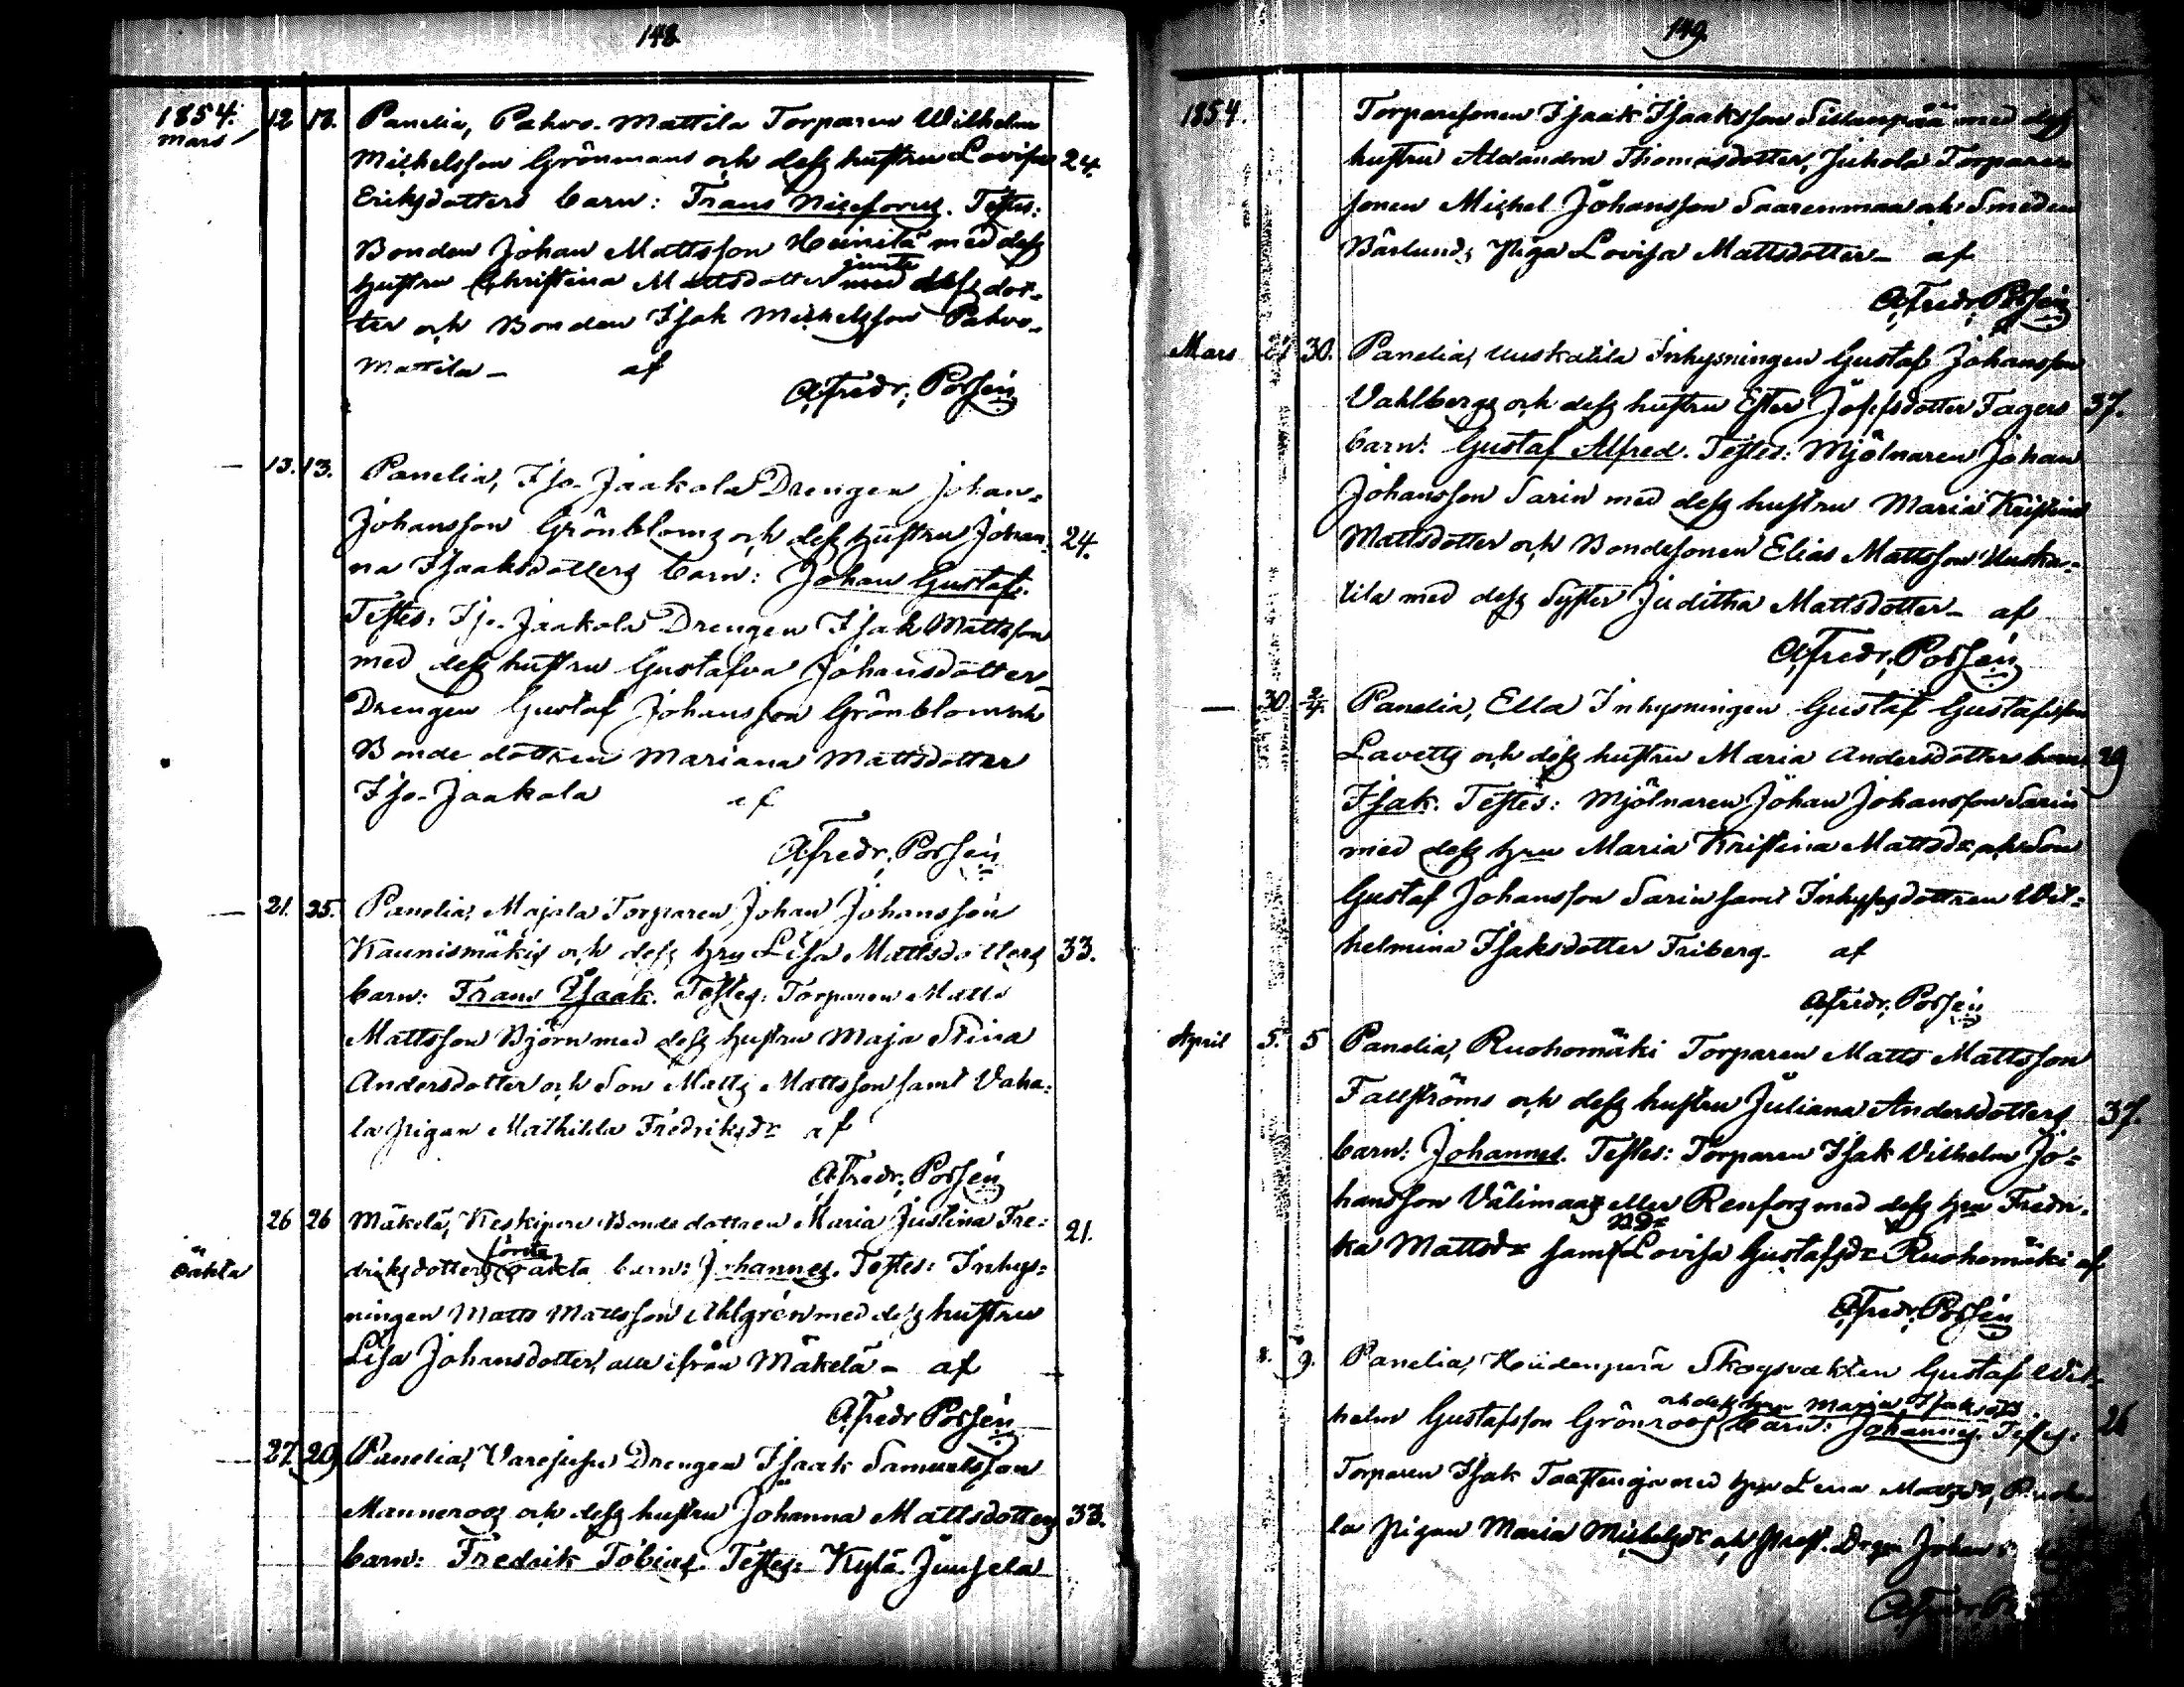 148.
1854. 12 18. Panelia, Pahvo-Mattila Torparen Wilhelm
Mars
Michelsson Grönmans och dess hustru Lovisa 24.
Eriksdotters barn: Frans Niceforus. Testes:
Bonden Johan Mattsson Heinilä med dess
hustru Christina Mattsdotter jemte dess dot-
ter och Bonden Isak Michelsson Pahvo-
Mattila - af
A. Fredr. Porsén
— 13. 13. Panelia, Iso-Jaakola Drengen Johan
Johansson Grönbloms och dess hustru Johan- 24.
na Isaaksdotters barn: Johan Gustaf.
Testes: Iso-Jaakola Drengen Isak Mattsson
med dess hustru Gustafva Johansdotter,
Drengen Gustaf Johansson Grönblom och
Bonde dottren Mariana Mattsdotter
Iso-Jaakola af
A. Fredr. Porsén
— 21. 25. Panelia, Majala Torparen Johan Johansson
Kaunismäkis och dess hru Lisa Mattsdotters 33.
barn: Frans Isaak. Testes: Torparen Matts
Mattsson Björn med dess hustru Maja Stina
Andersdotter och Son Matts Mattsson samt Vaha-
la pigan Mathilda Fredriksdr af
A. Fredr. Porsén
26 26 Mäkelä, Keskipere Bonde dottren Maria Justina Fre- 21.
första
oäkta driksdotters oäkta barn: Johannes. Testes: Inhys-
ningen Matts Mattsson Ahlgrén med dess hustru
Lisa Johansdotter, alla ifrån Mäkelä - af
A. Fredr. Porsén
— 27. 29. Panelia, Drengen Isaak Samuelsson
Manneroos och dess hustru Johanna Mattsdotters 33.
barn: Fredrik Tobias. Testes: Kylä-Juusela
149.
1854. Torparesonen Isaak Isaaksson Sillanpää med dess
hustru Alexandra Thomasdotter, Juhola Torpare
sonen Michel Johansson Saarenmaa och Smeden
Bärlunds Piga Lovisa Mattsdotter - af
A. Fredr. Porsén
Mars 30. Panelia, Uuskatila Inhysningen Gustaf Johansson
Vahlbergs och dess hustru Ester Josefsdotter Fagers 37.
barn: Gustaf Alfred. Testes: Mjölnaren Johan
Johansson Sarin med dess hustru Maria Kristina
Mattsdotter och Bondesonen Elias Mattsson Uuska-
tila med dess Syster Juditha Mattsdotter - af
A. Fredr. Porsén
— 30 2/4. Panelia, Ella Inhysningen Gustaf Gustafsson
Lavetts och dess hustru Maria Andersdotters barn 29
Isak. Testes: Mjölnaren Johan Johansson Sarin
med dess hru Maria Kristina Mattsdr och Son
Gustaf Johansson Sarin samt Inhyses dottren Wil-
helmina Isaksdotter Friberg. af
A. Fredr. Porsén
April 5. 5 Panelia, Ruohomäki Torparen Matts Mattsson
Fallströms och dess hustru Juliana Andersdotters 37.
barn: Johannes. Testes: Torparen Isak Vilhelm Jo-
hansson Välimaa eller Renfors med dess hru Fredri-
ka Mattsdr samt Lovisa Gustafsdr Ruohomäki af
A. Fredr. Porsén
8. 9. Panelia, Heidenperä Skogsvakten Gustaf Wil-
och dess hru Maria Isaksdrs
helm Gustafsson Grönroos barn: Johannes. Testes: 26
Torparen Isak med hru Lena
la pigan Maria Michelsdr och Johan
A. Fredr.